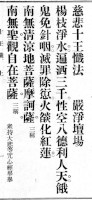 慈悲十王懺法　嚴淨壇場
楊枝淨水遍洒三千性空八德利人天餓
鬼免針咽滅罪除愆火燄化紅蓮
南無清涼地菩薩摩訶薩 三稱
南無聖觀自在菩薩 三稱